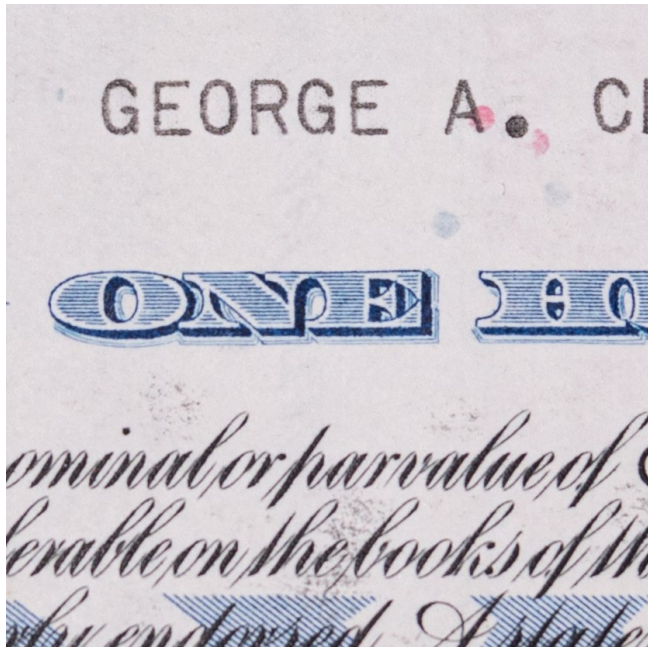 GEORGE A. C
ONE H
ominal or par value of
ferable on the books of th
endorsed. A state